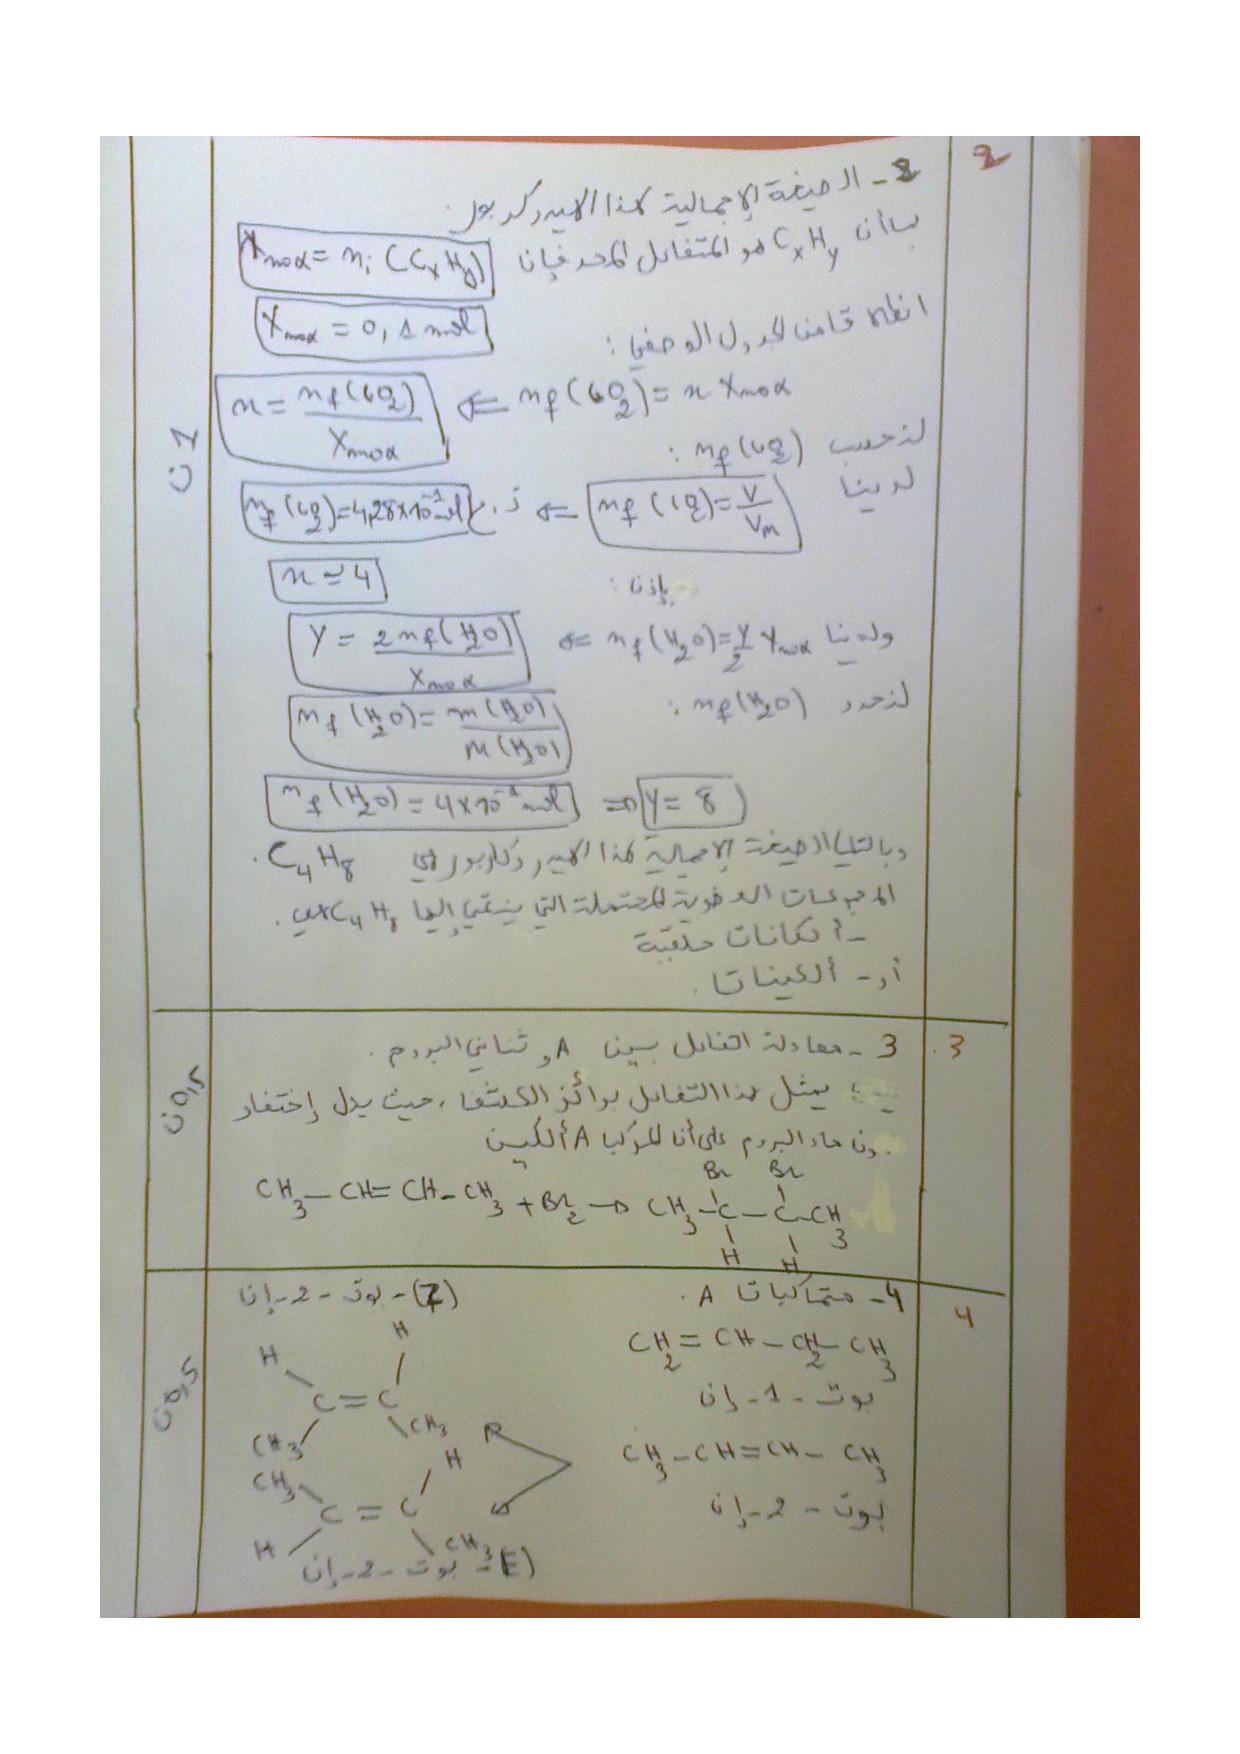 2
2 - الصيغة الإجمالية لهذا الهيدروكربور.
بما أن CxHy هو المتفاعل المحد فإن Xmax = ni (CxHy)
Xmax = 0,1 mol
انطلاقا من الجدول الوصفي :
nf (CO2) = x Xmax ⇐ x = nf (CO2) / Xmax
لنحسب nf (CO2) :
لدينا nf (CO2) = V / Vm ⇐ ت.ع nf (CO2) = 4,28×10⁻¹ mol
إذن : x ≃ 4
ن 1
ولدينا nf (H2O) = y/2 Xmax ⇐ y = 2 nf (H2O) / Xmax
لنحدد nf (H2O) :
nf (H2O) = m (H2O) / M (H2O)
nf (H2O) = 4×10⁻¹ mol ⇒ y = 8
وبالتالي الصيغة الإجمالية لهذا الهيدروكاربور هي C4H8 .
المجموعات العضوية المحتملة التي ينتمي إليها C4H8 هي.
- ألكانات حلقية
أو - ألكينات .
3
3 - معادلة التفاعل بين A و ثنائي البروم .
يمثل هذا التفاعل روائز الكشف ، حيث يدل إختفاء
لون ماء البروم على أن المركب A ألكين
CH3 – CH = CH – CH3 + Br2 → CH3 – C – C – CH3
Br Br
H H
ن 0,5
4
4 - متماكبات A .
CH2 = CH – CH2 – CH3
بوت - 1 - إن
CH3 – CH = CH – CH3
بوت - 2 - إن
(Z) - بوت - 2 - إن
H H
C = C
CH3 CH3
CH3 H
C = C
H CH3
(E) - بوت - 2 - إن
ن 0,5